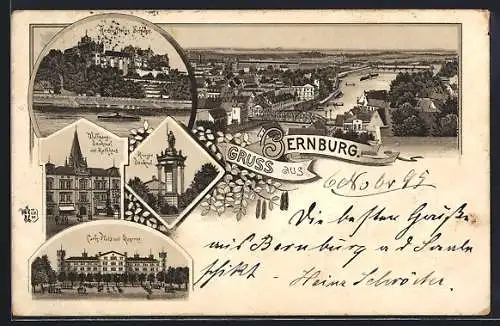 Herzogliches Schloss.
Wolfgang-
Denkmal
mit Rathhaus
Kriegs-
Denkmal
Carls-Platz mit Kaserne
GRUSS aus BERNBURG.
6 Novbr 95
Die besten Grüße
aus Bernburg ad Saale
schikt - Heinr Schröder.